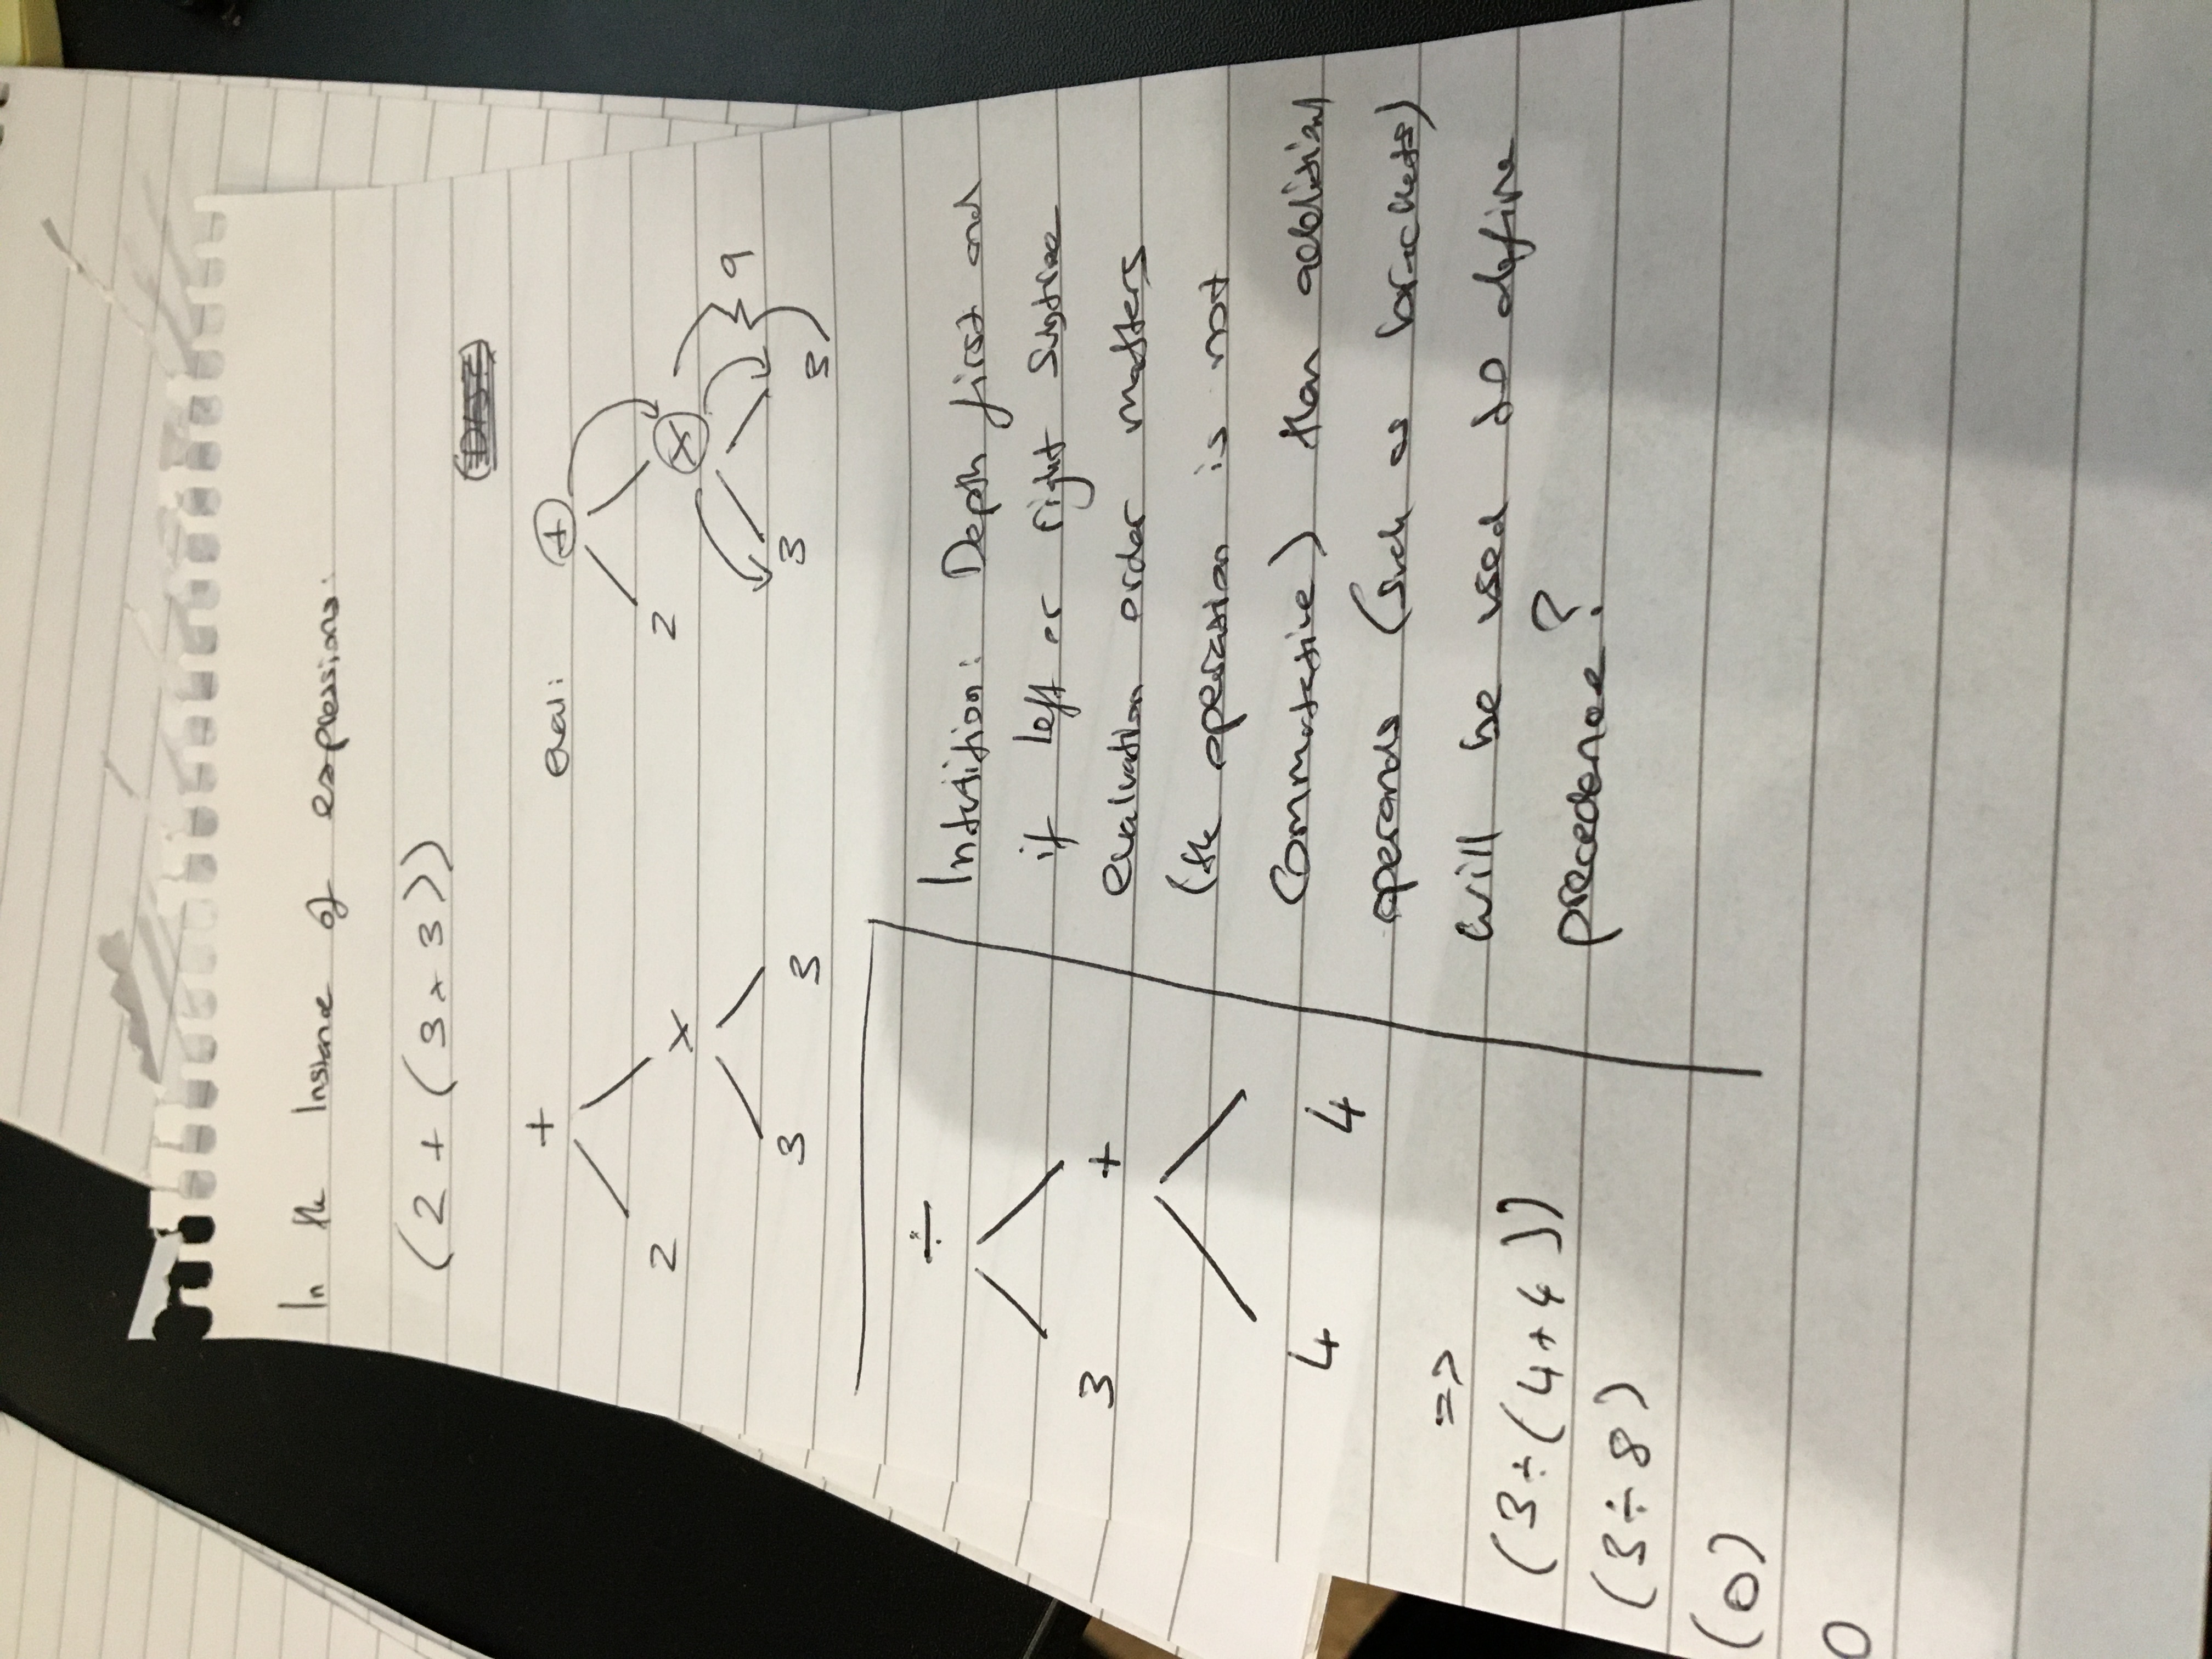 In the Instance of expressions:
(2 + (3 × 3))
+
2
×
3 3
eval: +
2
×
3
3
9
÷
3 +
4 4
=>
(3÷(4+4))
(3÷8)
(0)
0
Intuition: Depth first and
if left or right Subtree
evaluation order matters
(the operation is not
Commutative) then additional
operands (such as brackets)
will be used to define
precedence?